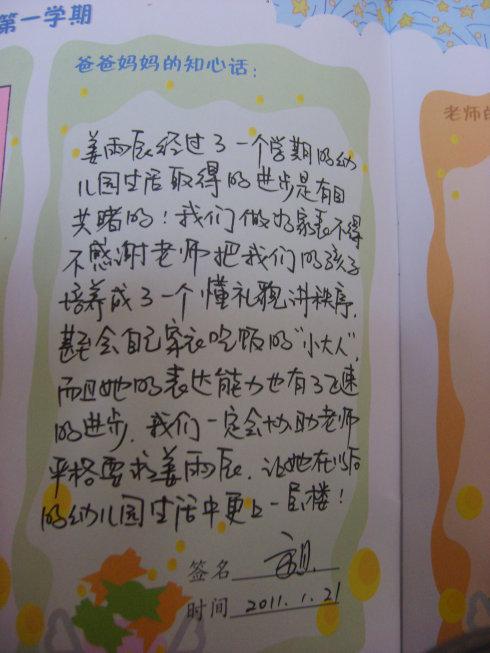 第一学期
爸爸妈妈的知心话：
老师的
姜雨辰经过了一个学期的幼
儿园生活取得的进步是有目
共睹的！我们做为家长不得
不感谢老师把我们的孩子
培养成了一个懂礼貌讲秩序，
甚至会自己穿衣吃饭的“小大人”，
而且她的表达能力也有了飞速
的进步．我们一定会协助老师
严格要求姜雨辰．让她在以后
的幼儿园生活中更上一层楼！
签名
时间 2011.1.21